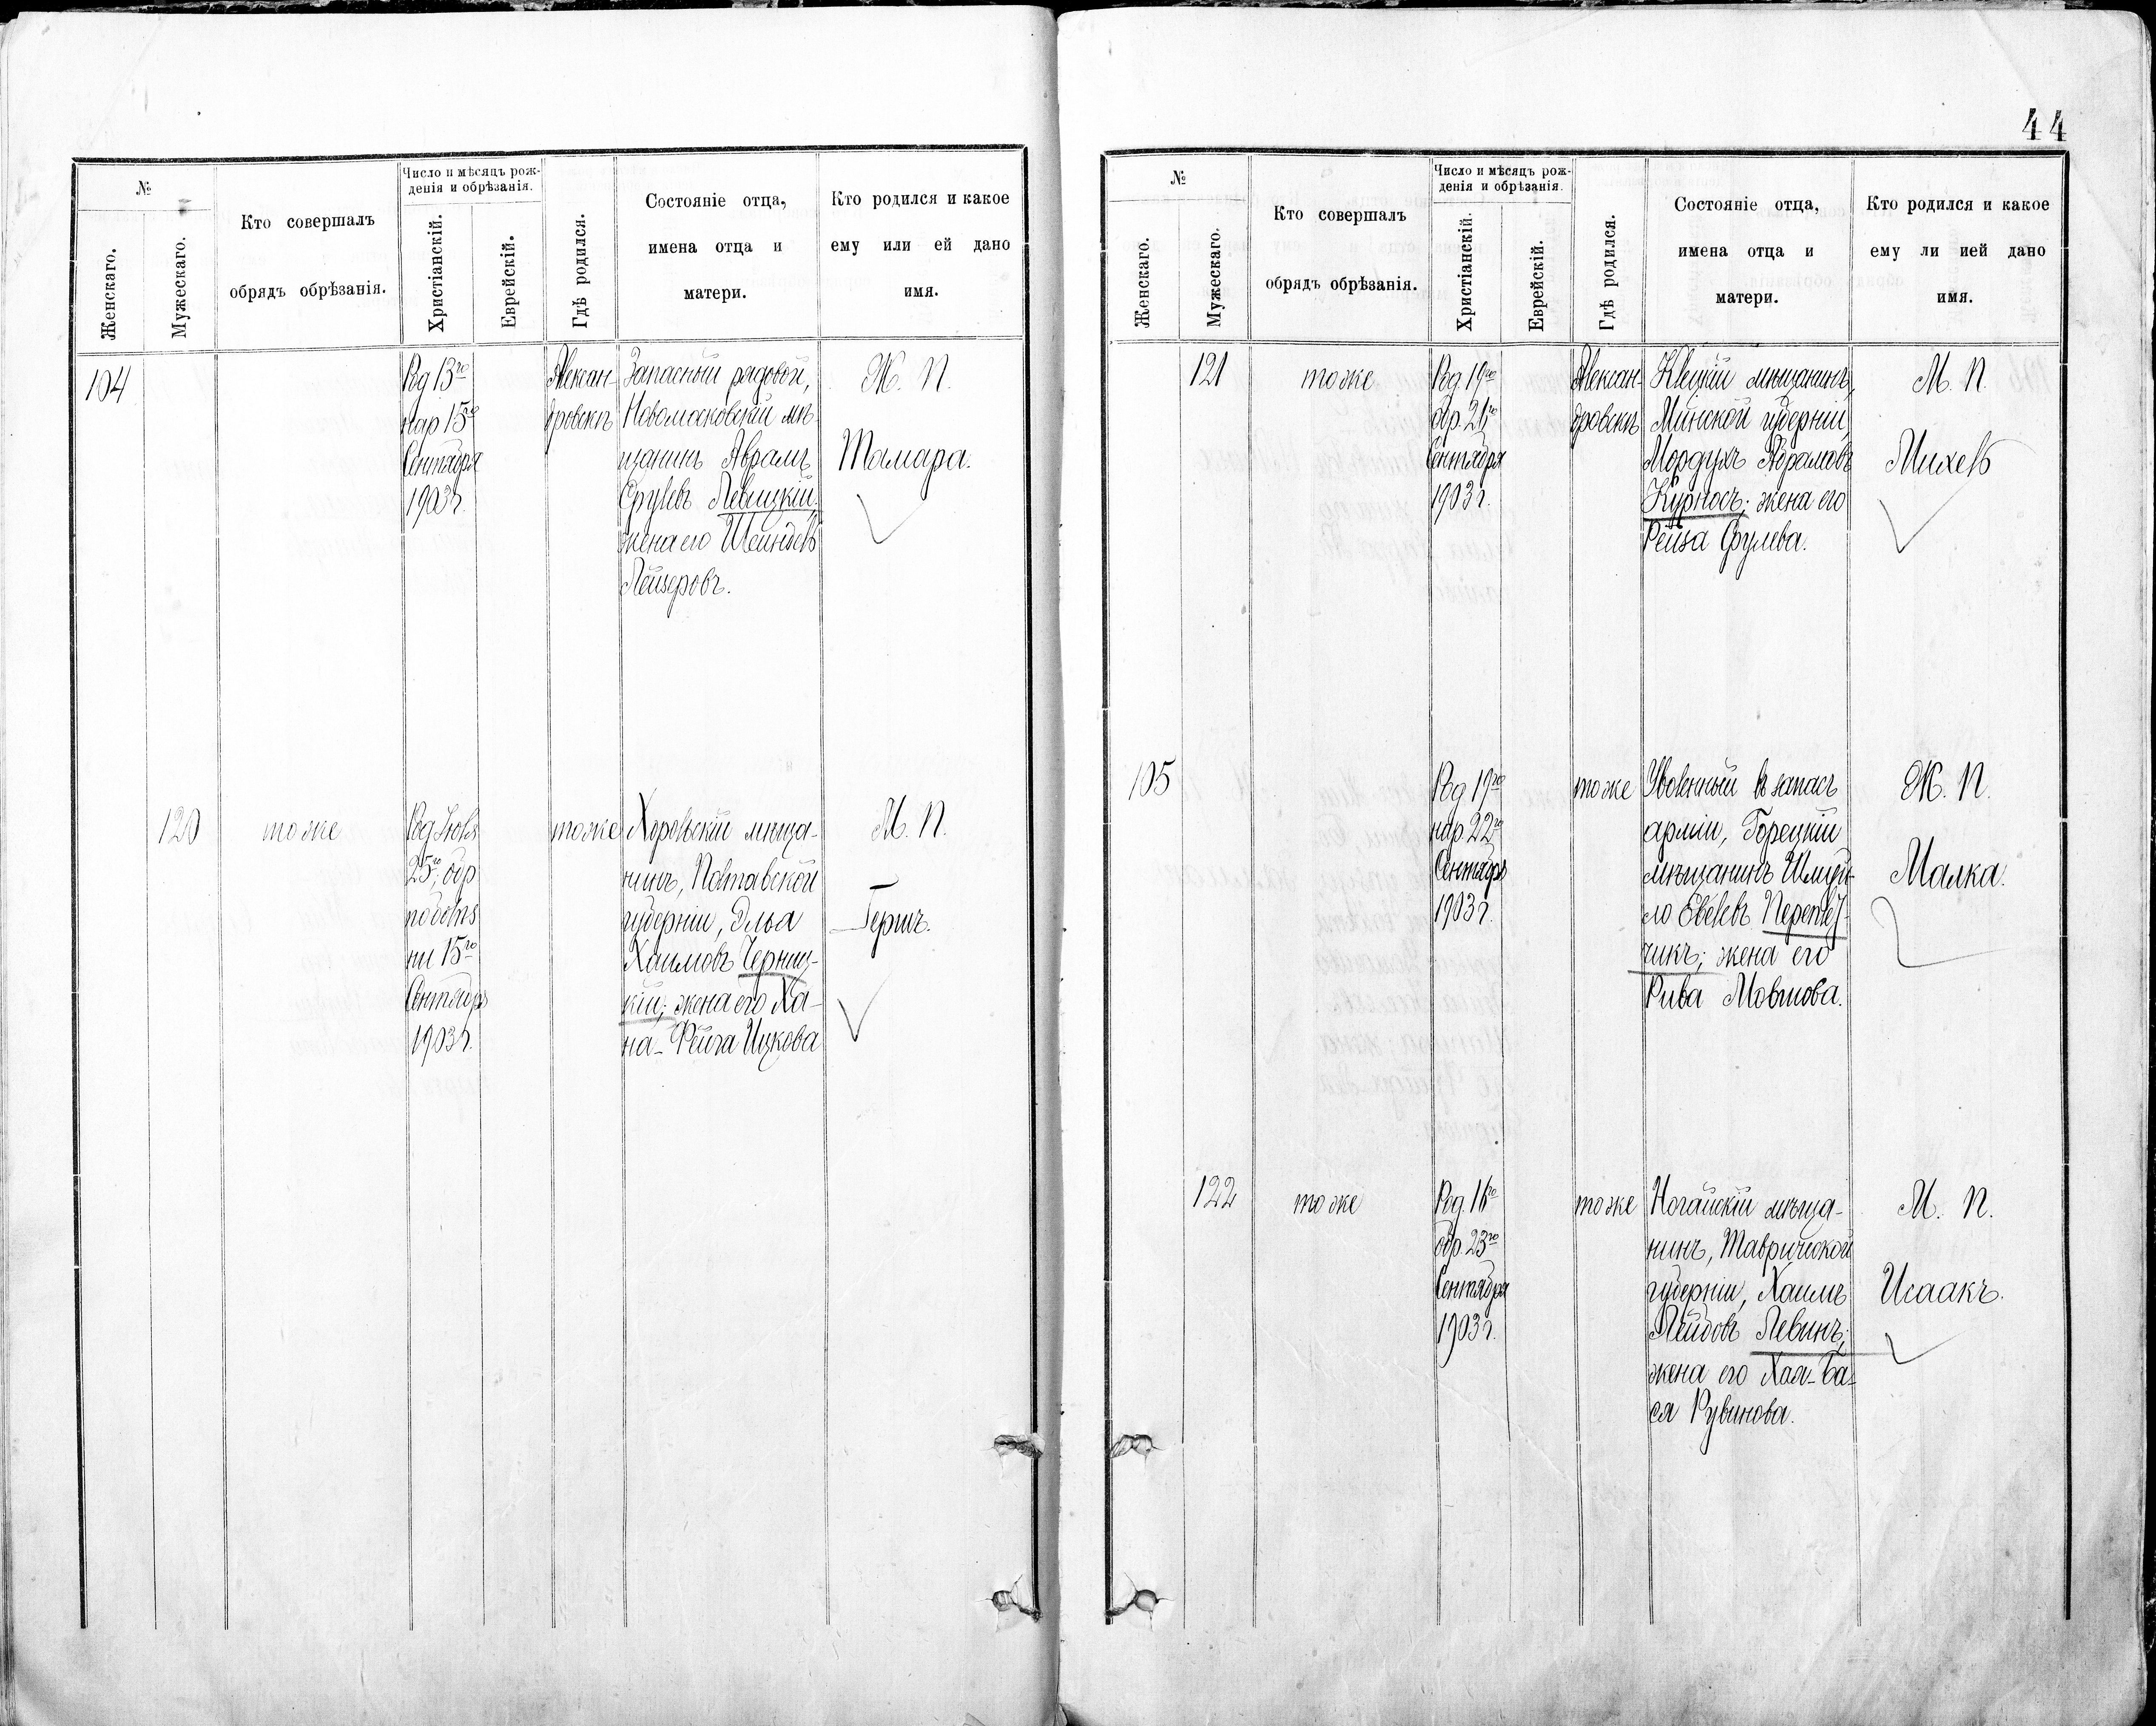 44
№
Женскаго.
Мужескаго.
Кто совершалъ
обрядъ обрѣзанія.
Число и мѣсяцъ рож-
денія и обрѣзанія.
Христіанскій.
Еврейскій.
Гдѣ родился.
Состояніе отца,
имена отца и
матери.
Кто родился и какое
ему или ей дано
имя.
104
Род 13го
нар 15го
Сентября
1903 г.
Алексан-
дровскъ
Запасный рядовой,
Новомосковскій мѣ-
щанинъ Абрамъ
Срулевъ Левицкій;
жена его Шейндель
Лейзеровъ.
Ж. П.
Тамара.
120
тоже
Род Іюля
25го, обр
по болѣз
ни 15го
Сентября
1903 г.
тоже
Хорольскій мѣща-
нинъ, Полтавской
губерніи, Элья
Хаимовъ Черниц-
кій; жена его Ха-
на-Фейга Ицкова
М. П.
Гершъ.
№
Женскаго.
Мужескаго.
Кто совершалъ
обрядъ обрѣзанія.
Число и мѣсяцъ рож-
денія и обрѣзанія.
Христіанскій.
Еврейскій.
Гдѣ родился.
Состояніе отца,
имена отца и
матери.
Кто родился и какое
ему ли ией дано
имя.
121
тоже
Род. 19го
обр. 21го
Сентября
1903 г.
Алексан-
дровскъ
Клецкій мѣщанинъ,
Минской губерніи,
Мордухъ Абрамовъ
Курносъ; жена его
Рейза Срулева.
М. П.
Михель
105
Род 19го
нар. 22го
Сентября
1903 г.
тоже
Уволенный въ запасъ
арміи, Горецкій
мѣщанинъ Шмуй-
ло Евелевъ Переплет-
чикъ; жена его
Рива Мовшова.
Ж. П.
Малка.
122
тоже
Род. 16го
обр. 23го
Сентября
1903 г.
тоже
Ногайскій мѣща-
нинъ, Таврической
губерніи, Хаимъ
Левинъ;
жена его Хая-Ба-
ся Рувинова.
М. П.
Исаакъ.